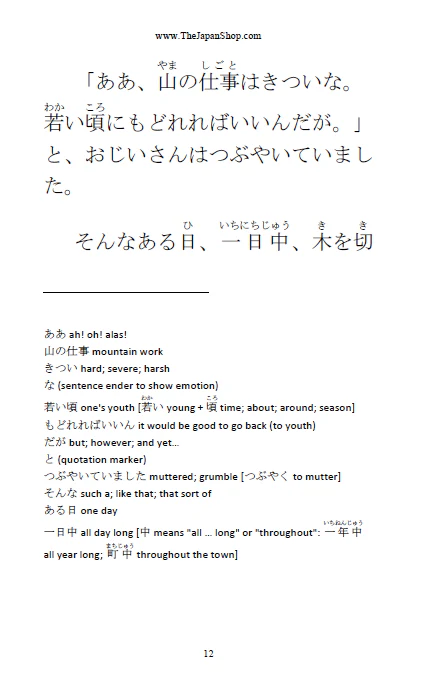 www.TheJapanShop.com
「ああ、山の仕事はきついな。
若い頃にもどれればいいんだが。」
と、おじいさんはつぶやいていまし
た。
そんなある日、一日中、木を切
ああ ah! oh! alas!
山の仕事 mountain work
きつい hard; severe; harsh
な (sentence ender to show emotion)
若い頃 one's youth [若い young + 頃 time; about; around; season]
もどれればいいん it would be good to go back (to youth)
だが but; however; and yet...
と (quotation marker)
つぶやいていました muttered; grumble [つぶやく to mutter]
そんな such a; like that; that sort of
ある日 one day
一日中 all day long [中 means "all ... long" or "throughout": 一年中
all year long; 町中 throughout the town]
12